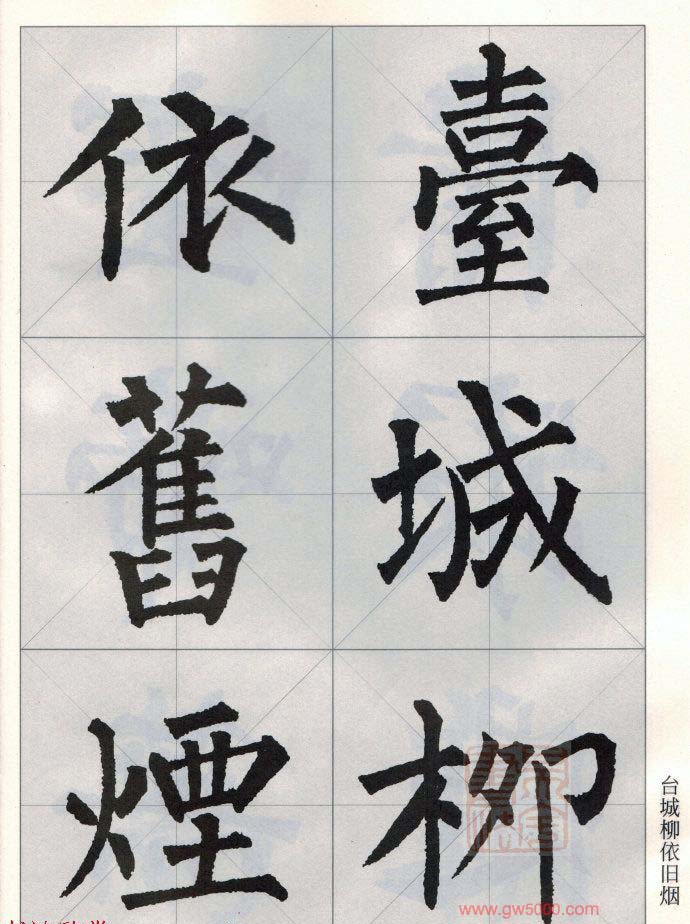 臺城柳
依舊煙
台城柳依旧烟
www.gw5000.com